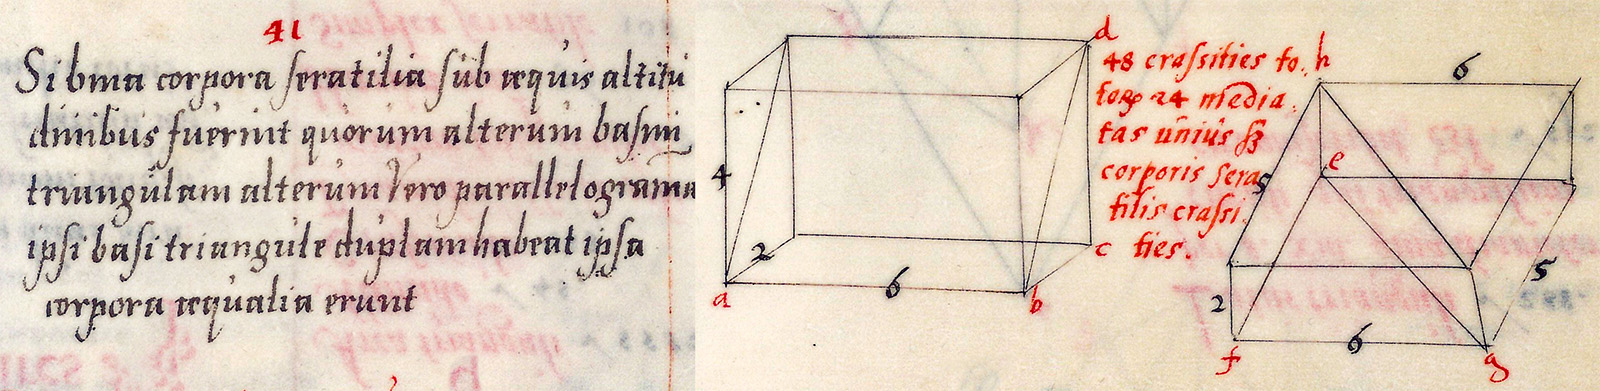 41
Si bina corpora seratilia sub æquis altitu
dinibus fuerint quorum alterum basim
triangulam alterum vero parallelograma
ipsi basi triangule duplam habeat ipsa
corpora æqualia erunt
d
48 crassities to.
24 media.
tas unius
corporis sera
tilis crassi.
c ties.
4
2
6
a
b
h
6
e
5
5
2
6
f
g